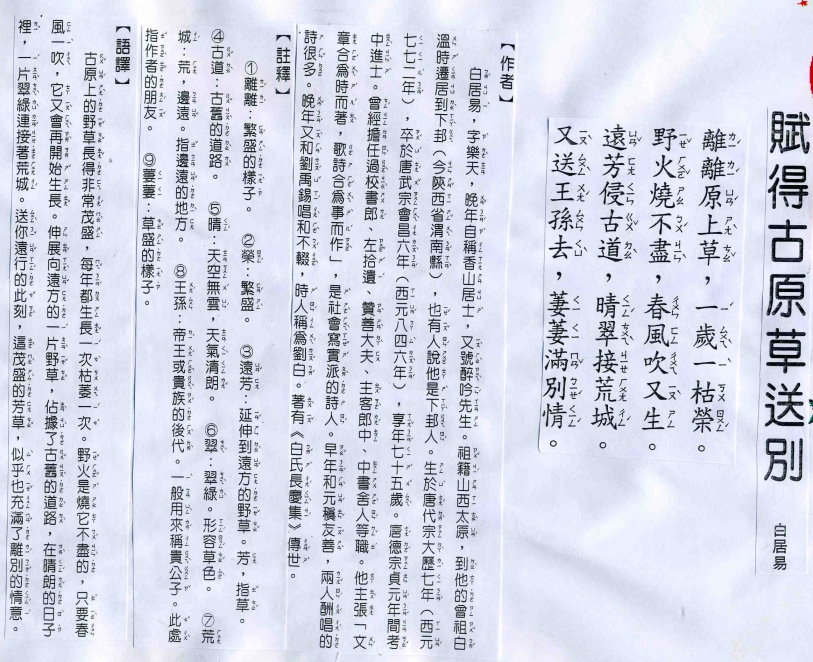 賦得古原草送別
白居易
離離原上草，一歲一枯榮。
野火燒不盡，春風吹又生。
遠芳侵古道，晴翠接荒城。
又送王孫去，萋萋滿別情。
【作者】
白居易，字樂天，晚年自稱香山居士，又號醉吟先生。祖籍山西太原，到他的曾祖白
溫時遷居到下邽（今陝西省渭南縣）也有人說他是下邽人。生於唐代宗大歷七年（西元
七七二年），卒於唐武宗會昌六年（西元八四六年），享年七十五歲。唐德宗貞元年間考
中進士。曾經擔任過校書郎、左拾遺、贊善大夫、主客郎中、中書舍人等職。他主張「文
章合為時而著，歌詩合為事而作」，是社會寫實派的詩人。早年和元稹友善，兩人酬唱的
詩很多。晚年又和劉禹錫唱和不輟，時人稱為劉白。著有《白氏長慶集》傳世。
【註釋】
①離離：繁盛的樣子。 ②榮：繁盛。 ③遠芳：延伸到遠方的野草。芳，指草。
④古道：古舊的道路。 ⑤晴：天空無雲，天氣清朗。 ⑥翠：翠綠。形容草色。 ⑦荒
城：荒，邊遠。指邊遠的地方。 ⑧王孫：帝王或貴族的後代。一般用來稱貴公子。此處
指作者的朋友。 ⑨萋萋：草盛的樣子。
【語譯】
古原上的野草長得非常茂盛，每年都生長一次枯萎一次。野火是燒它不盡的，只要春
風一吹，它又會再開始生長。伸展向遠方的一片野草，佔據了古舊的道路，在晴朗的日子
裡，一片翠綠連接著荒城。送你遠行的此刻，這茂盛的芳草，似乎也充滿了離別的情意。